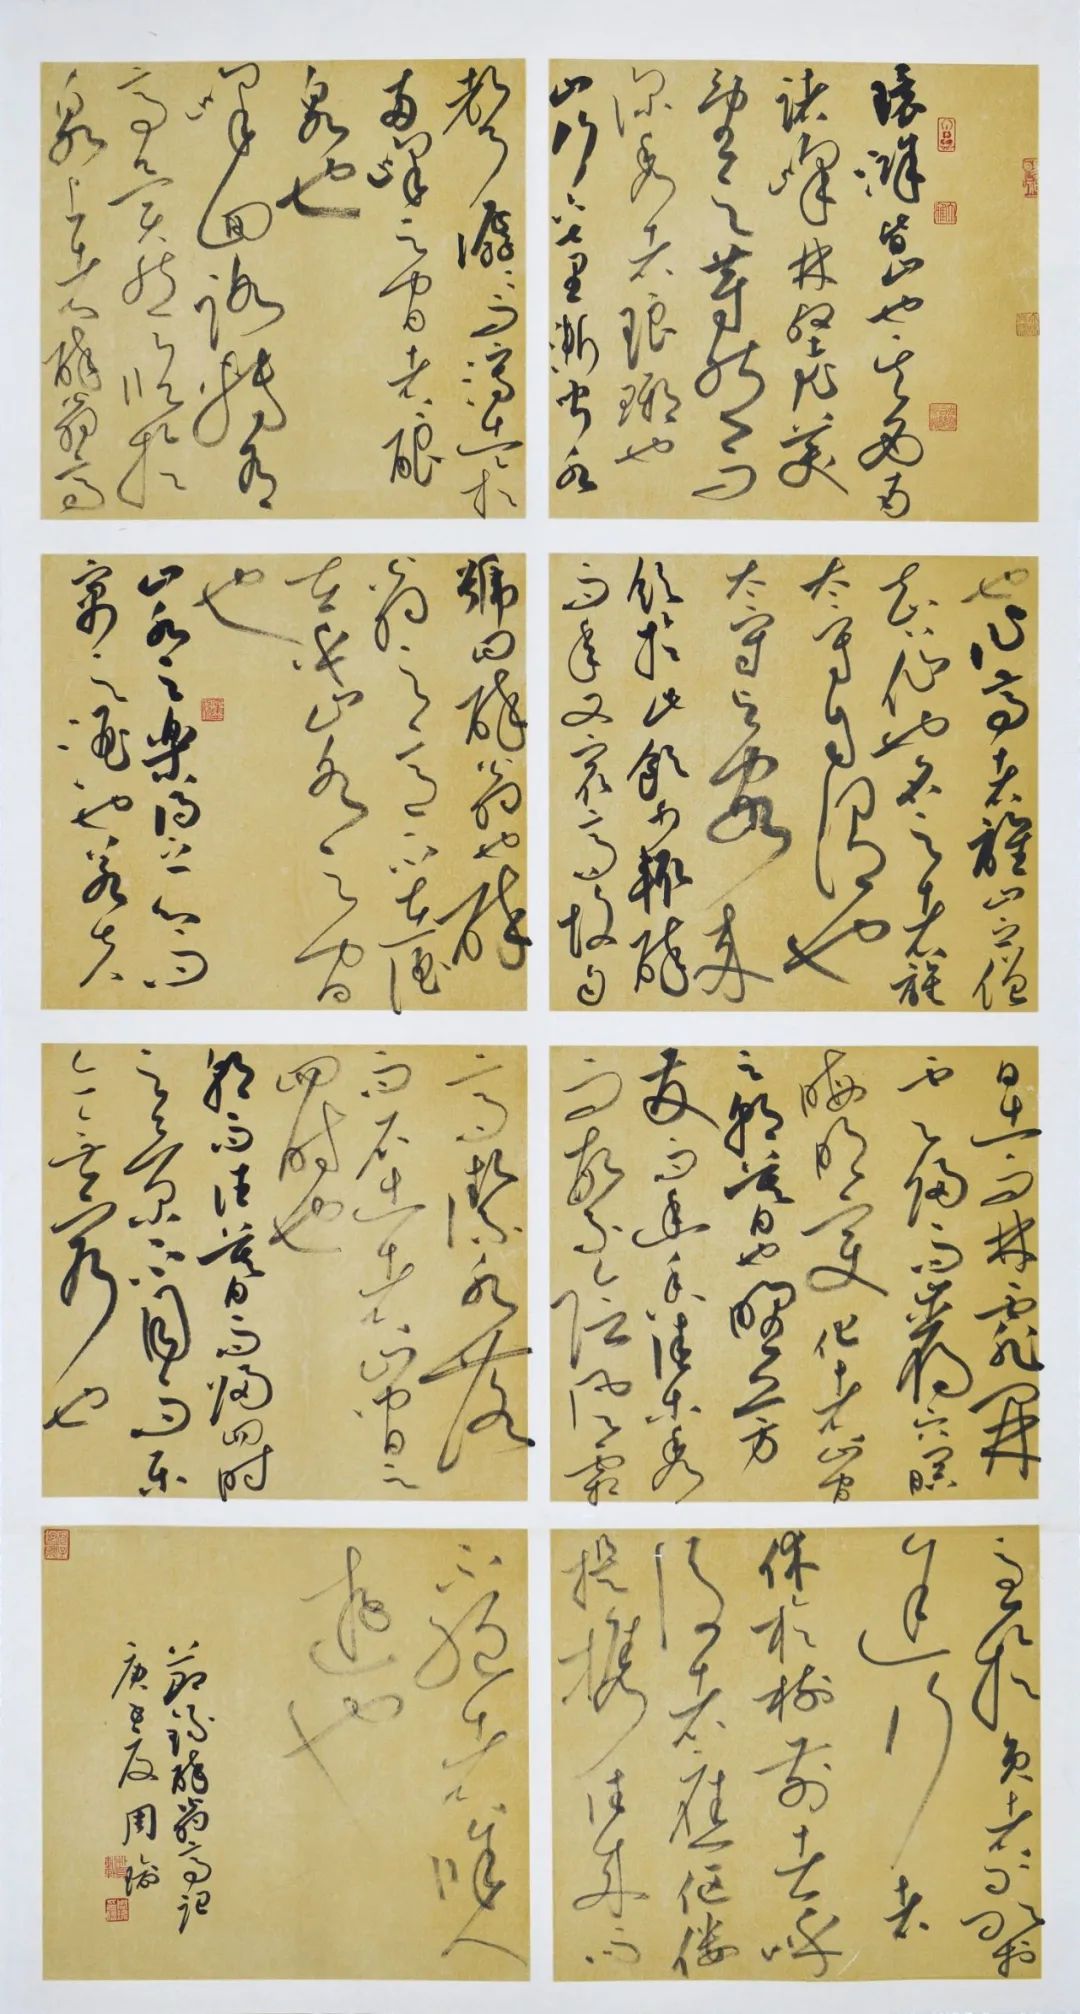 環滁皆山也其西南
諸峰林壑尤美
望之蔚然而
深秀者琅琊也
山行六七里漸聞水
聲潺潺而瀉出於
兩峰之間者釀
泉也
峰回路轉有
亭翼然臨於
泉上者醉翁亭
也作亭者誰山之僧
智仙也名之者誰
太守自謂也
太守與客來
飲於此飲少輒醉
而年又最高故自
號曰醉翁也醉
翁之意不在酒
在乎山水之間
也
山水之樂得之心而
寓之酒也若夫
日出而林霏開
雲歸而巖穴暝
晦明變化者山間
之朝暮也野芳
發而幽香佳木秀
而繁陰風霜
高潔水落
而石出者山間之
四時也
朝而往暮而歸四時
之景不同而樂
亦無窮也
至於負者歌於
途行者
休於樹前者呼
後者應傴僂
提攜往來而
不絕者滁人
遊也
節錄醉翁亭記
庚子夏周瑜